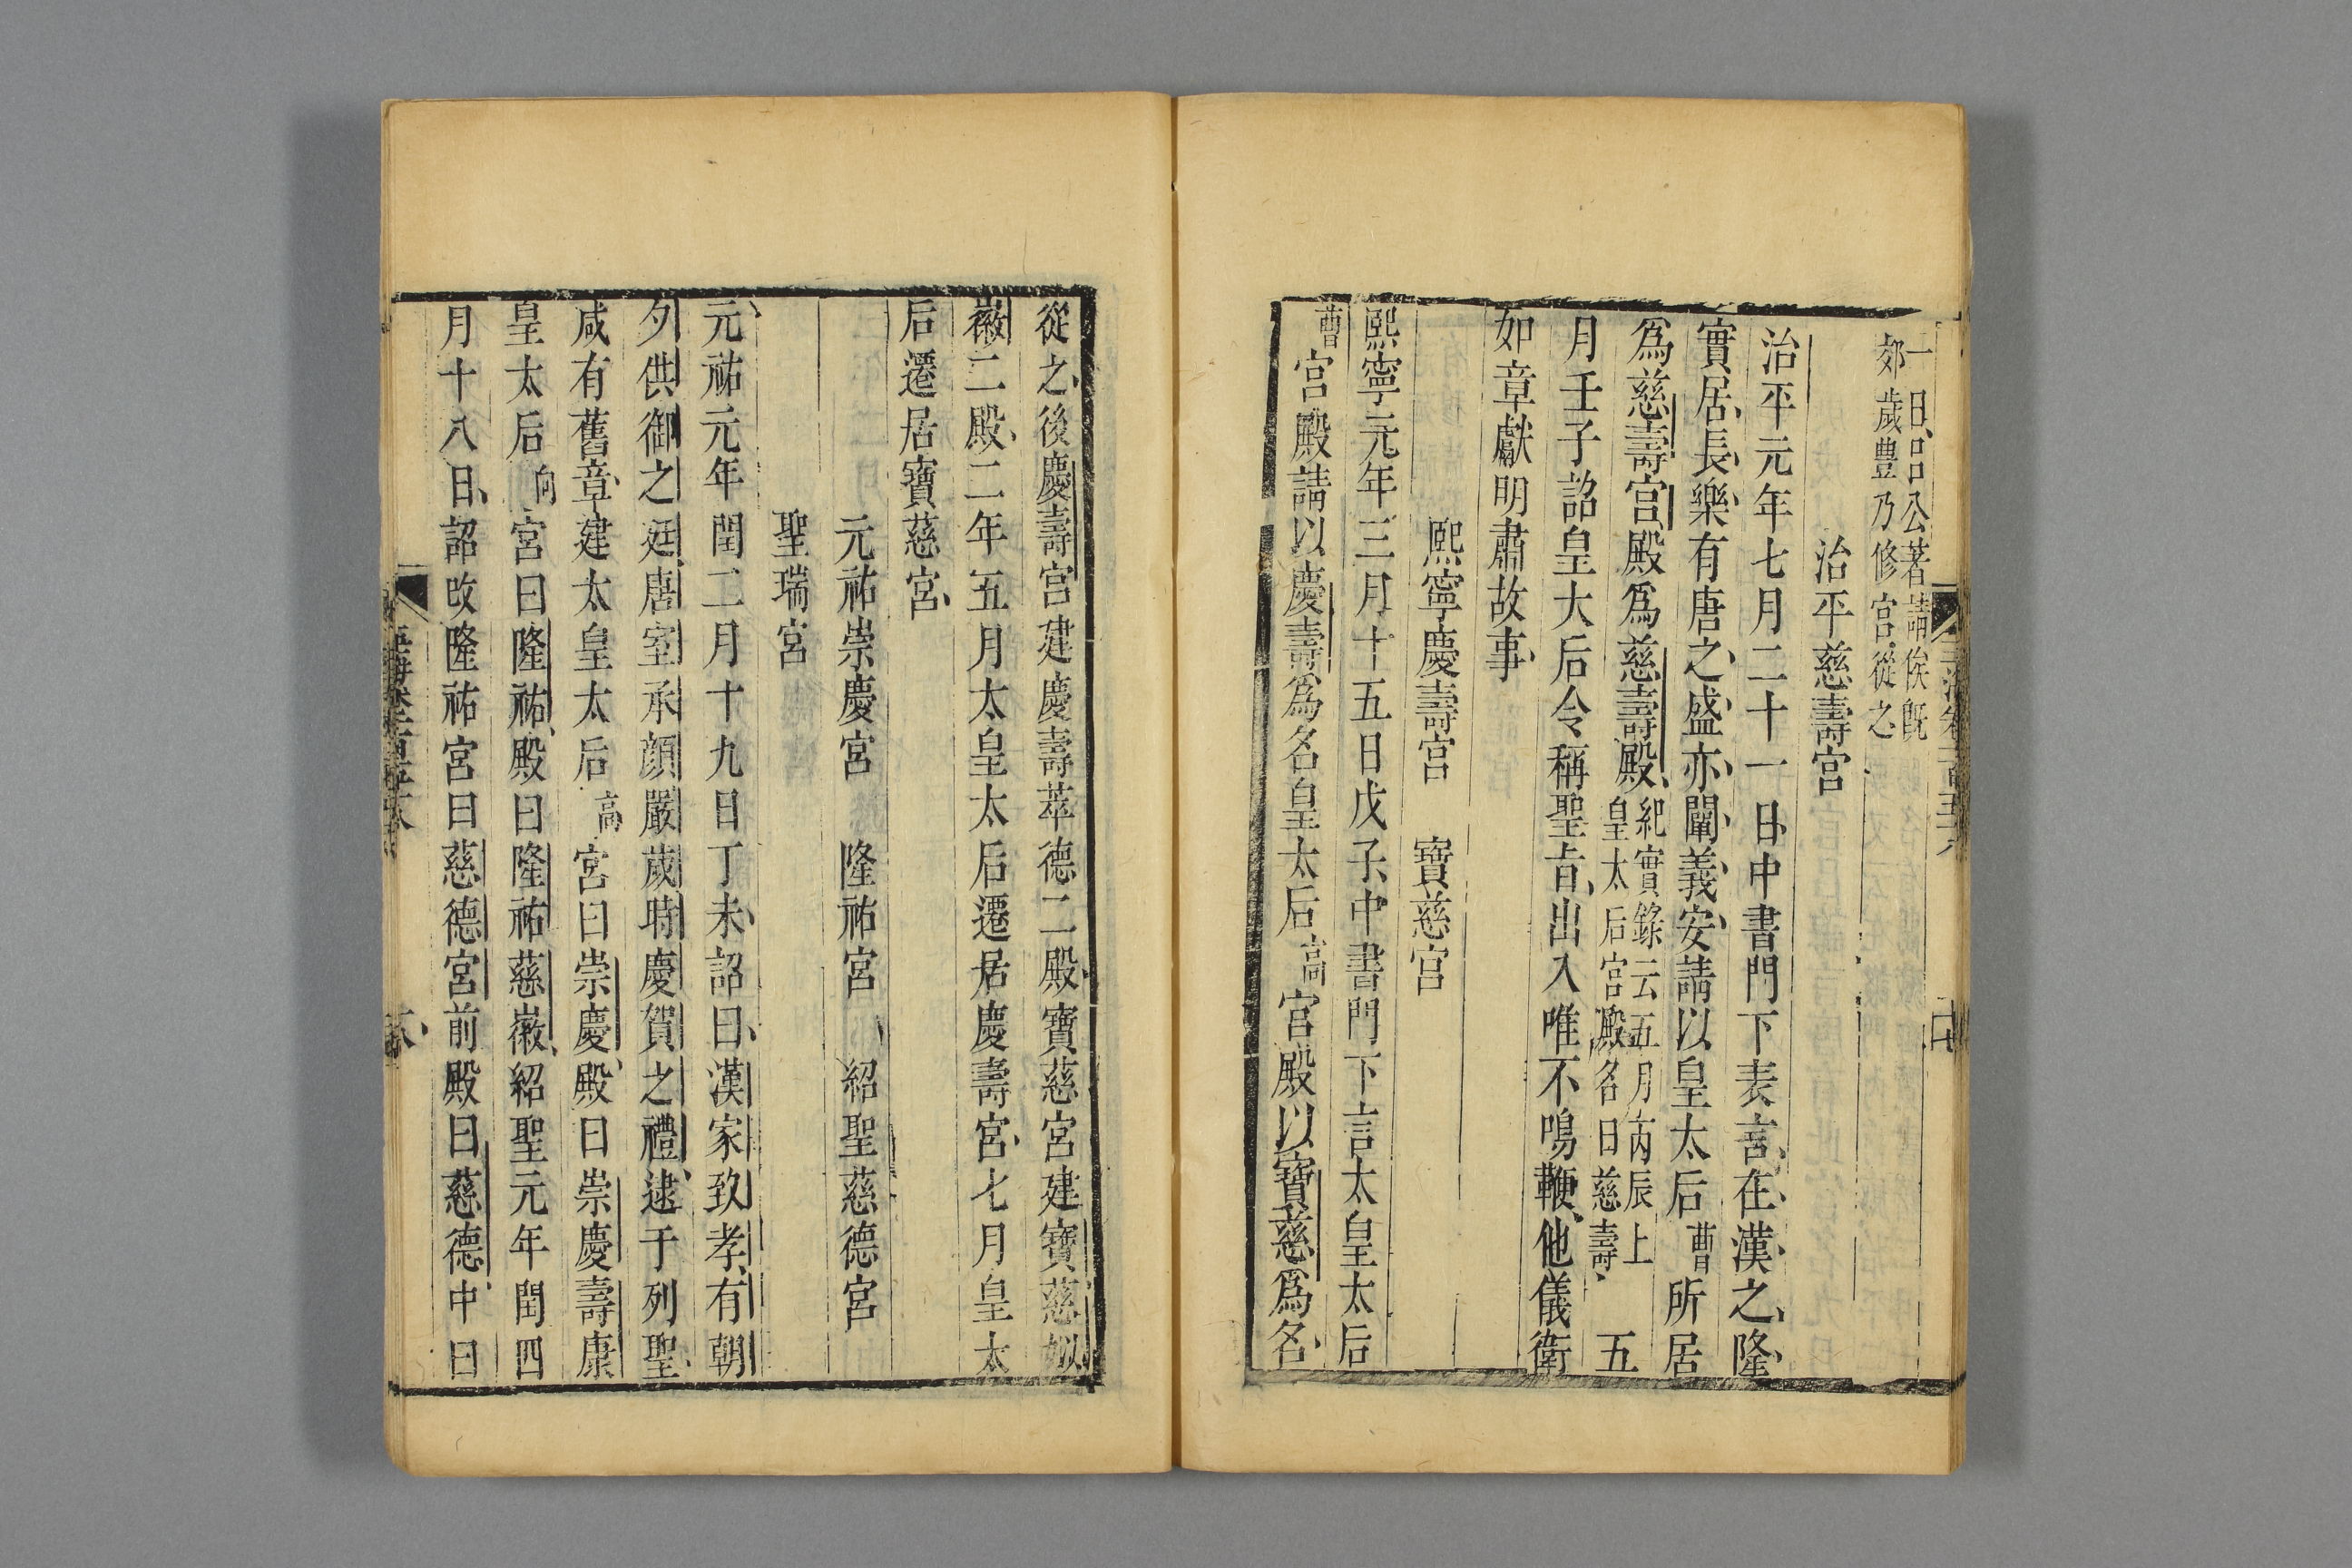 一日呂公著請俟既
郊歲豊乃修宮從之
治平慈壽宮
治平元年七月二十一日中書門下表言在漢之隆
實居長樂有唐之盛亦闢義安請以皇太后曹所居
為慈壽宮殿為慈壽殿紀實錄云五月丙辰上皇太后宮殿名曰慈壽五
月壬子詔皇太后令稱聖旨出入唯不鳴鞭他儀衛
如章獻明肅故事
熙寧慶壽宮　寶慈宮
熙寧元年三月十五日戊子中書門下言太皇太后
曹宮殿請以慶壽為名皇太后高宮殿以寶慈為名
從之後慶壽宮建慶壽萃德二殿寶慈宮建寶慈姒
徽二殿二年五月太皇太后遷居慶壽宮七月皇太
后遷居寶慈宮
元祐崇慶宮　隆祐宮　紹聖慈德宮
聖瑞宮
元祐元年閏二月十九日丁未詔曰漢家致孝有朝
夕供御之廷唐室承顔嚴歲時慶賀之禮逮于列聖
咸有舊章建太皇太后高宮曰崇慶殿曰崇慶壽康
皇太后向宮曰隆祐殿曰隆祐慈徽紹聖元年閏四
月十八日詔改隆祐宮曰慈德宮前殿曰慈德中曰